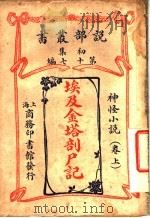 說部叢書
初集
第十七編
神怪小說（卷上）
埃及金塔剖尸記
上海商務印書館發行